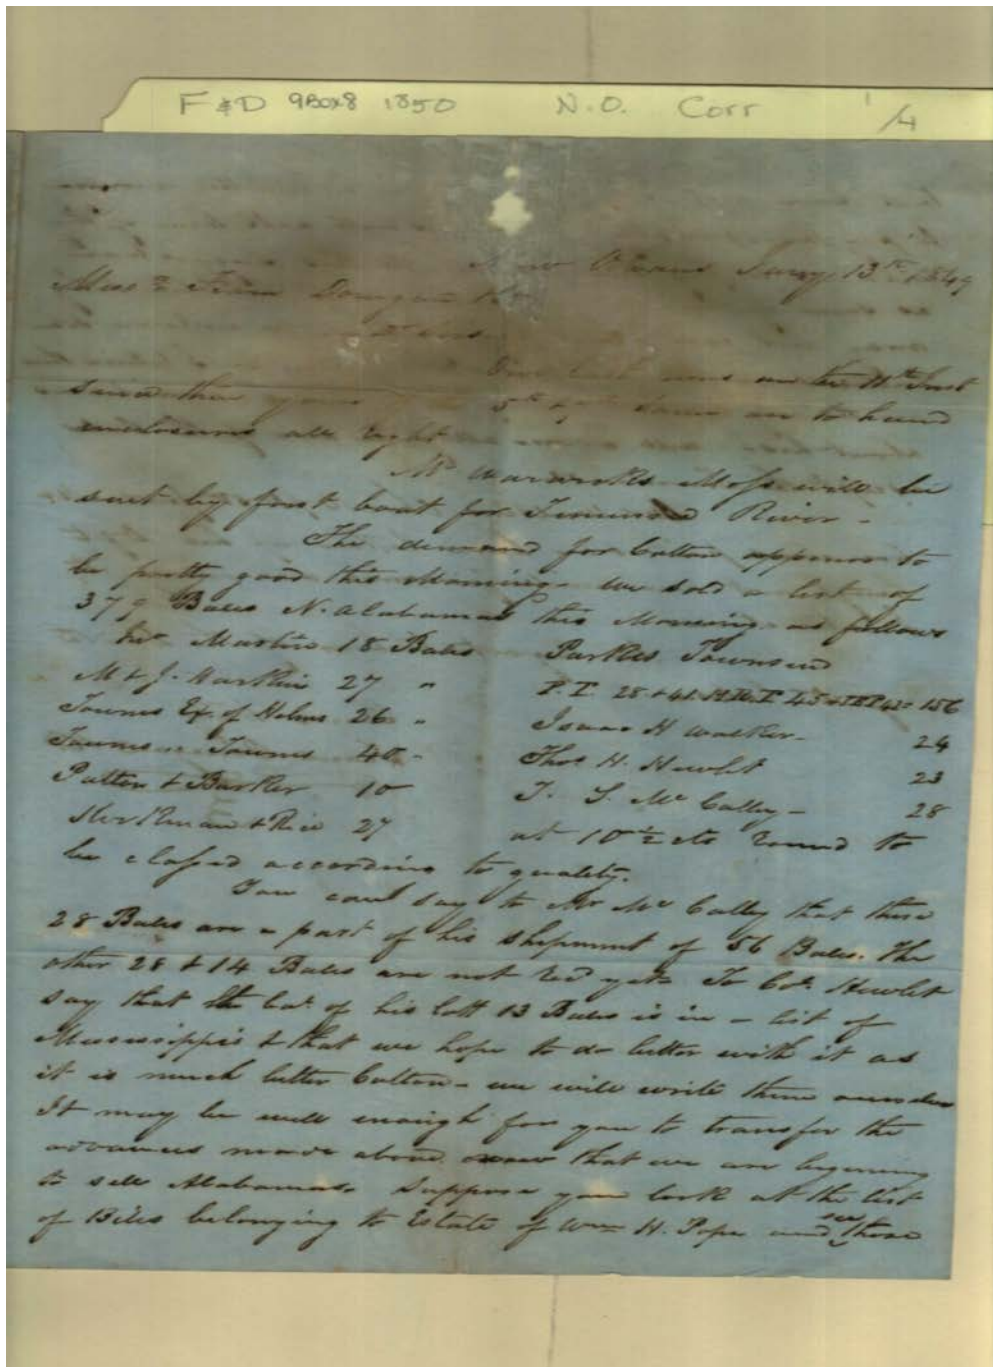 F & D 9 Box 8 1850 N.O. Corr 1/4
New Orleans Jany 13th 1849
Messrs
Drs Sirs
Our last was on the 11th Inst
since then yours 5th & are to hand
enclosures all right
Mr Warwicks Moss will be
sent by first boat for Tennessee River -
The demand for Cotton appears to
be pretty good this Morning - we sold a list of
379 Bales N. Alabamas this Morning as follows
Martin 18 Bales Parkes Townsend
M & J. Harkins 27 " P.T. 28 + 41. 45 + 42 = 156
Townes Ex of Helms 26 " Isaac H Walker - 24
Townes Townes 40 - Thos H. Hewlet 23
Patton & Barker 10 T. S. Mc Calley - 28
Kirkman & Rice 27 at 10 1/2 cts round to
be classed according to quality.
You can say to Mr Mc Calley that these
28 Bales are a part of his shipment of 56 Bales. The
other 28 & 14 Bales are not Recd yet - To Col. Hewlet
say that the bal of his lott 13 Bales is in - list of
Mississippis & that we hope to do better with it as
it is much better Cotton - we will write them ourselves
It may be well enough for you to transfer the
advances made above now that we are begening
to sell Alabamas. Suppose you look at the list
of Bills belonging to Estate of Wm H. Pope and see those